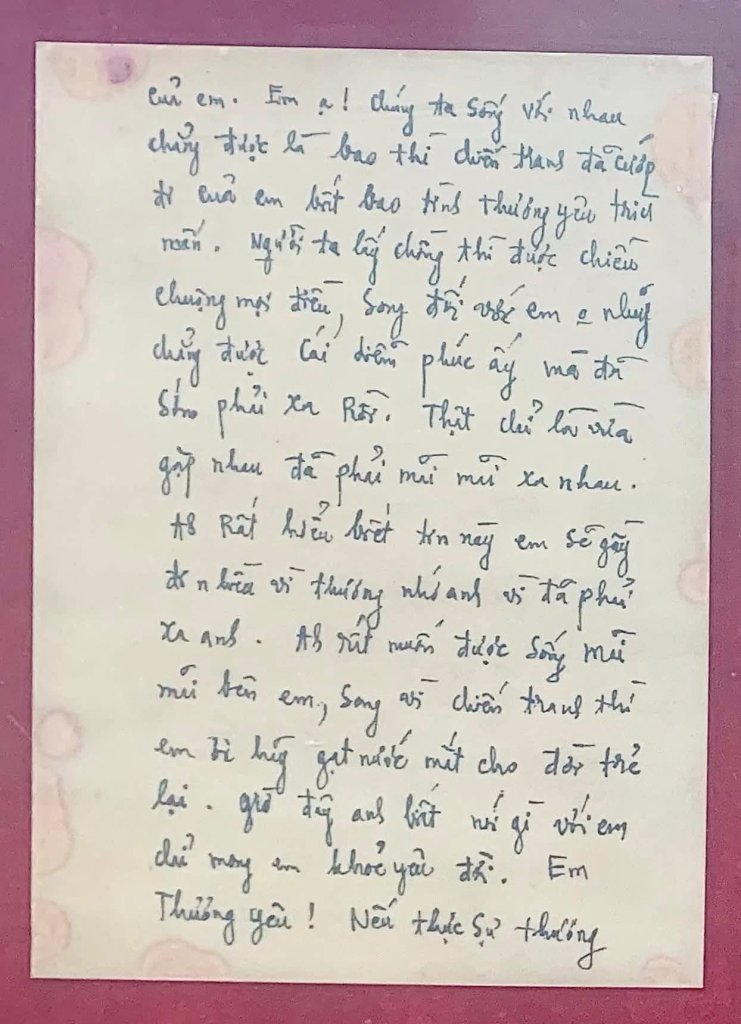 của em. Em ạ! chúng ta sống với nhau
chẳng được là bao thì chiến tranh đã cướp
đi của em biết bao tình thương yêu trìu
mến. Người ta lấy chồng thì được chiều
chuộng mọi điều, song đối với em ạ những
chẳng được cái diễm phúc ấy mà đã
sớm phải xa Rồi. Thật chỉ là vừa
gặp nhau đã phải mãi mãi xa nhau.
A8 Rất hiểu biết tin này em sẽ gầy
đi nhiều vì thương nhớ anh vì đã phải
xa anh. A8 rất muốn được sống mãi
mãi bên em, song vì chiến tranh thì
em ơi hãy gạt nước mắt cho đời trẻ
lại. giờ đây anh biết nói gì với em
chỉ mong em khoẻ yêu đời. Em
Thương yêu! Nếu thực sự thương